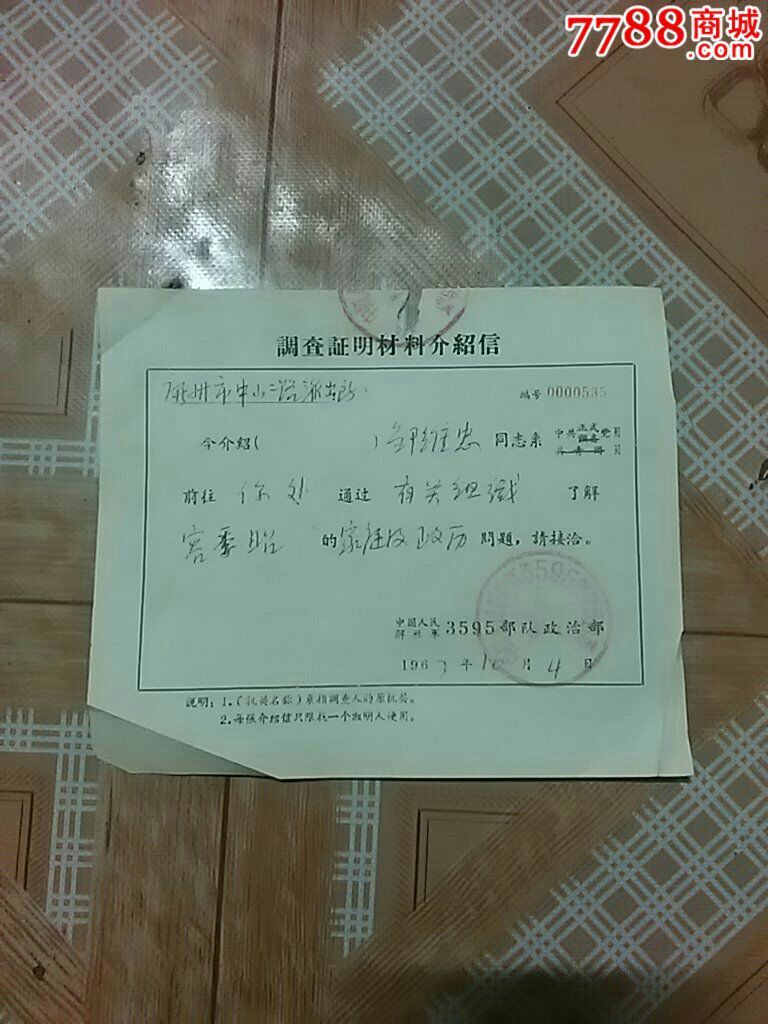 7788商城
.com
調查証明材料介紹信
广州市中山二路派出所：
编号 0000535
今介紹( )維忠 同志系 中共正式党員
前往 你处 通过 有关组織 了解
容季 的家庭及政历 問題，請接洽。
3595
中国人民
解放军 3595部队政治部
196 年10月4日
說明：1.(机关名称)章指調查人的原机关。
2.每張介紹信只限找一个証明人使用。